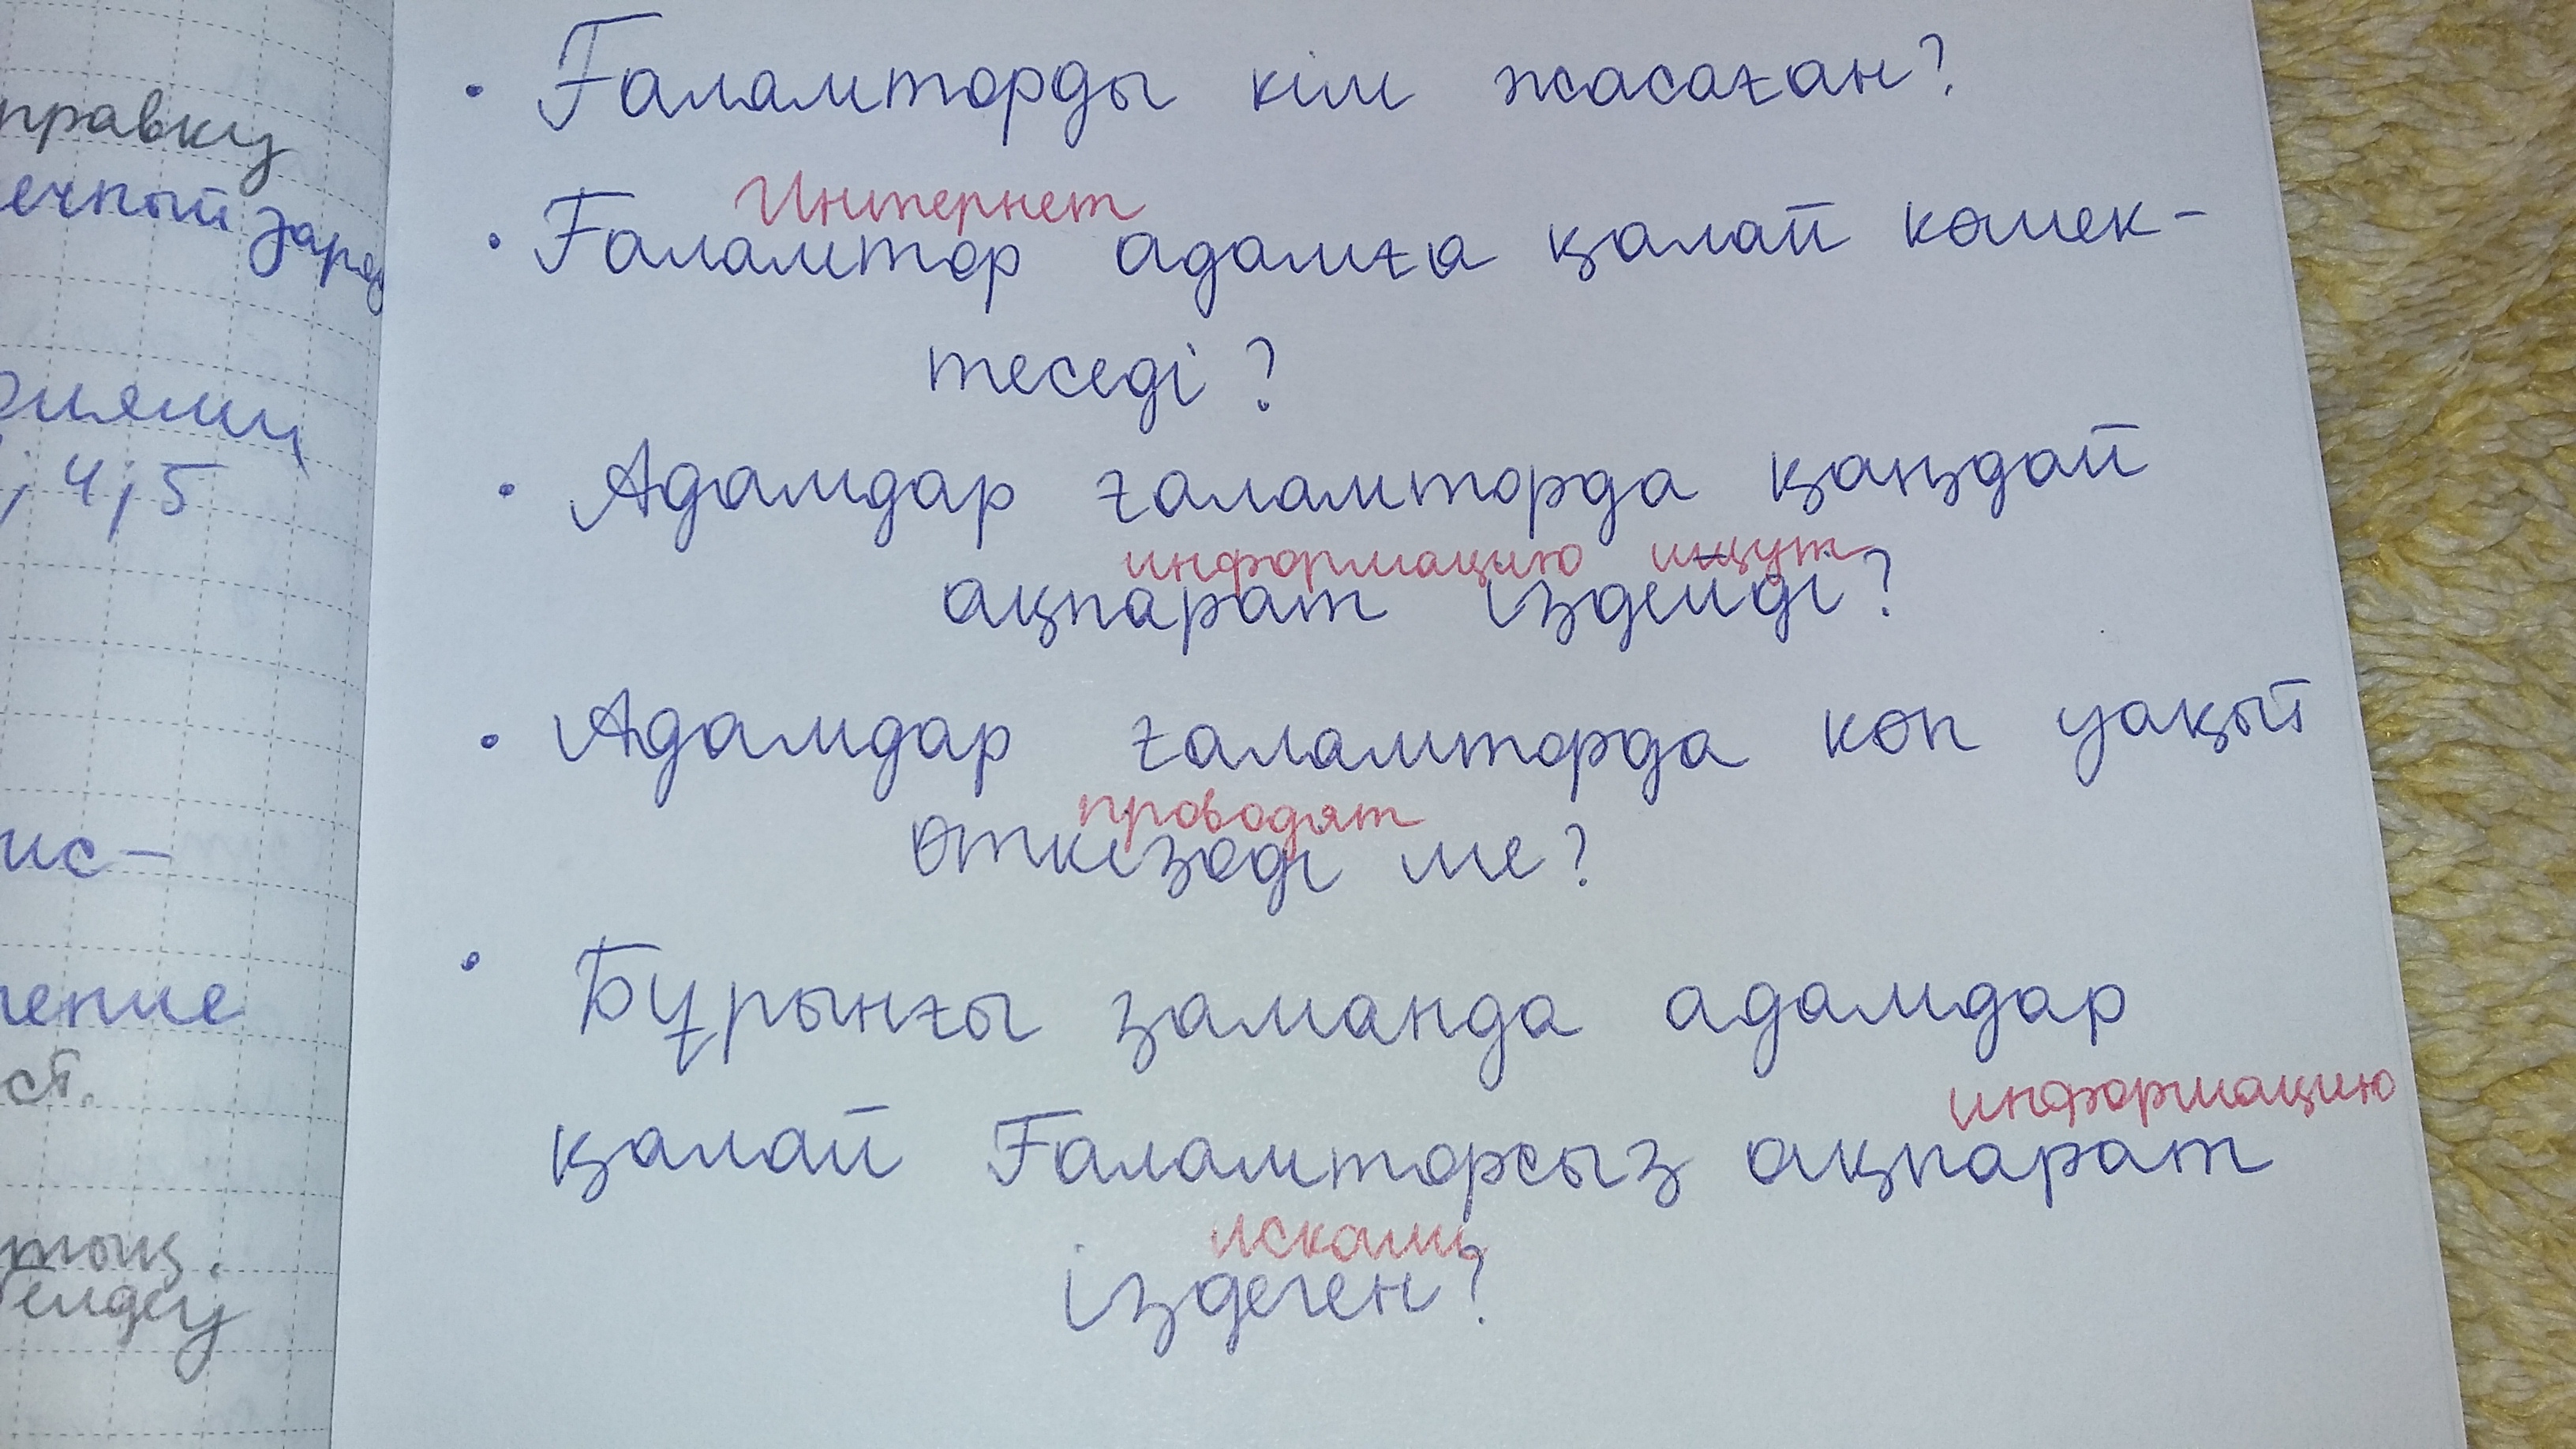 правку
ечный заряд
; 4; 5
ис-
ст.
• Ғаламторды кім жасаған?
Интернет
• Ғаламтор адамға қалай көмек-
теседі?
• Адамдар ғаламторда қаңдай
информацию ищут
ақпарат іздейді?
• Адамдар ғаламторда көп уақыт
проводят
өткізеді ме?
• Бұрынғы заманда адамдар
информацию
қалай Ғаламторсыз ақпарат
искали
іздеген?